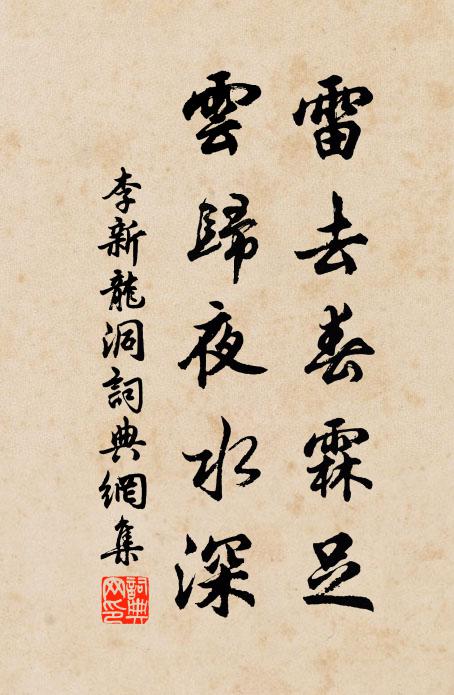 雷去春霖足
雲歸夜水深
李新龍洞詞典網集
詞典
网印